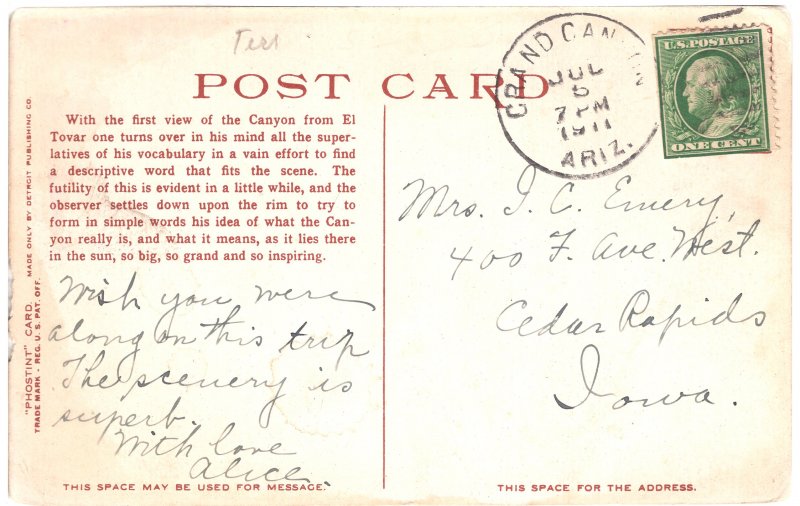 Terr
POST CARD
GRAND CANYON
JUL
5
7 PM
1911
ARIZ.
U.S. POSTAGE
ONE CENT
With the first view of the Canyon from El
Tovar one turns over in his mind all the super-
latives of his vocabulary in a vain effort to find
a descriptive word that fits the scene. The
futility of this is evident in a little while, and the
observer settles down upon the rim to try to
form in simple words his idea of what the Can-
yon really is, and what it means, as it lies there
in the sun, so big, so grand and so inspiring.
Wish you were
along on this trip
The scenery is
superb.
With love
Alice.
Mrs. I. C. Emery,
400 F. Ave. West.
Cedar Rapids
Iowa.
"PHOSTINT" CARD. MADE ONLY BY DETROIT PUBLISHING CO.
TRADE MARK - REG. U.S. PAT. OFF.
THIS SPACE MAY BE USED FOR MESSAGE.
THIS SPACE FOR THE ADDRESS.